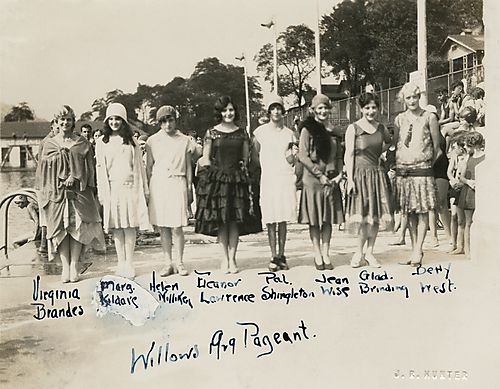 Virginia Marg. Helen Eleanor Pal. Jean Glad. Betty
Brandes Kildare Milliken Lawrence Shingleton Wise Brinding West.
Willows Arg Pageant.
J. R. HUNTER